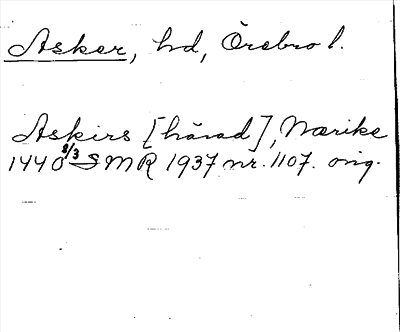 Asker, hd, Örebro l.
Askirs [härad], Nærike
1440 8/3 SMR 1937 nr. 1107. orig.